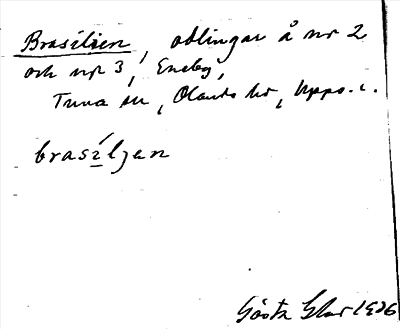 Brasilien, odlingar å nr 2
och nr 3, Eneby,
Tuna sn, Olands hd, Upps. l.
brasíljen
Gösta 1936